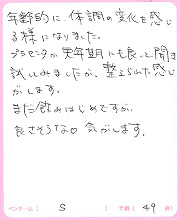 年齢的に、体調の変化を感じ
る様になりました。
プラセンタが更年期にも良いと聞き
試してみましたが、整えられた感じ
がします。
まだ飲みはじめですが、
良さそうな気がします。
ペンネーム( S ) 年齢( 49 歳)